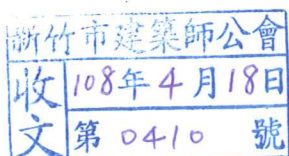 新竹市建築師公會
收文
108年4月18日
第 0410 號